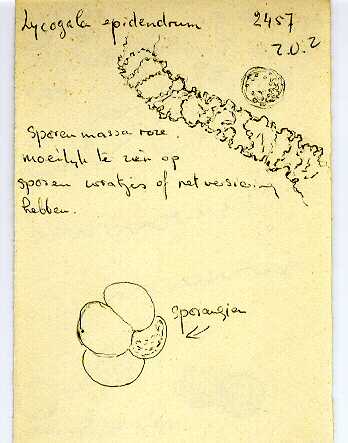 Lycogala epidendrum 2457
Z.O.Z
Sporenmassa roze.
moeilijk te zien op
sporen wratjes of netversiering
hebben.
sporangien